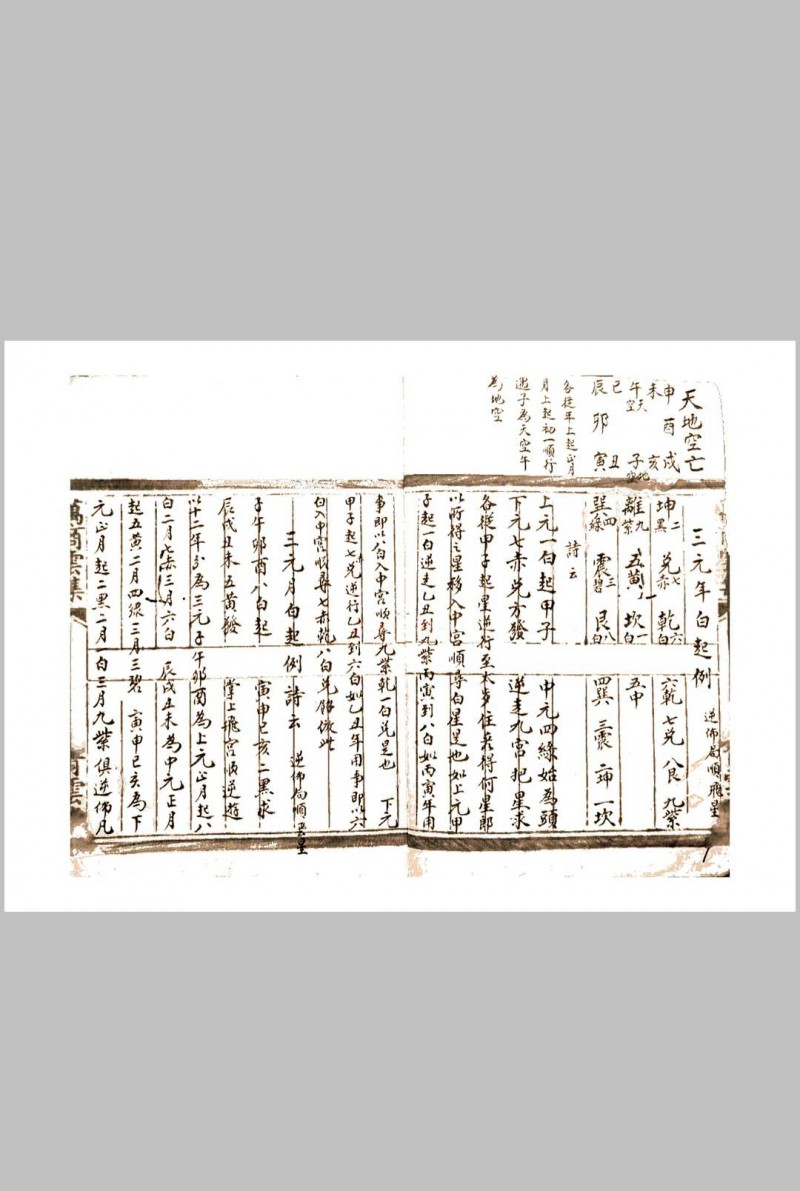 天地空亡
申酉戌
未 亥
午天空 子地空
巳 丑
辰卯寅
各從年上起正月
月上起初一順行
遇子為天空午
為地空
三元年白起例 逆佈局順飛星
坤二黑 兌七赤 乾六白 六乾 七兌 八艮 九紫
離九紫 五黃 坎一白 五中
巽四綠 震三碧 艮八白 四巽 三震 二坤 一坎
詩云
上元一白起甲子 中元四綠始為頭
下元七赤兌方發 逆走九宮把星求
各從甲子起星逆行至太歲住看得何星即
以所得之星移入中宮順尋白星是也如上元甲
子起一白逆走乙丑到九紫丙寅到八白如丙寅年用
事即以八白入中宮順尋九紫乾一白兌是也 下元
甲子起七兌逆行乙丑到六白如乙丑年用事即以六
白入中宮順尋七赤乾八白兌餘倣此
三元月白起例 詩云 逆佈局順星
子午卯酉八白起 寅申巳亥二黑求
辰戌丑未五黃發 掌上飛宮順逆遊
以十二年分為三元子午卯酉為上元正月起八
白二月七赤三月六白 辰戌丑未為中元正月
起五黃二月四綠三月三碧 寅申巳亥為下
元正月起二黑二月一白三月九紫俱逆佈凡
萬商雲集
商雲